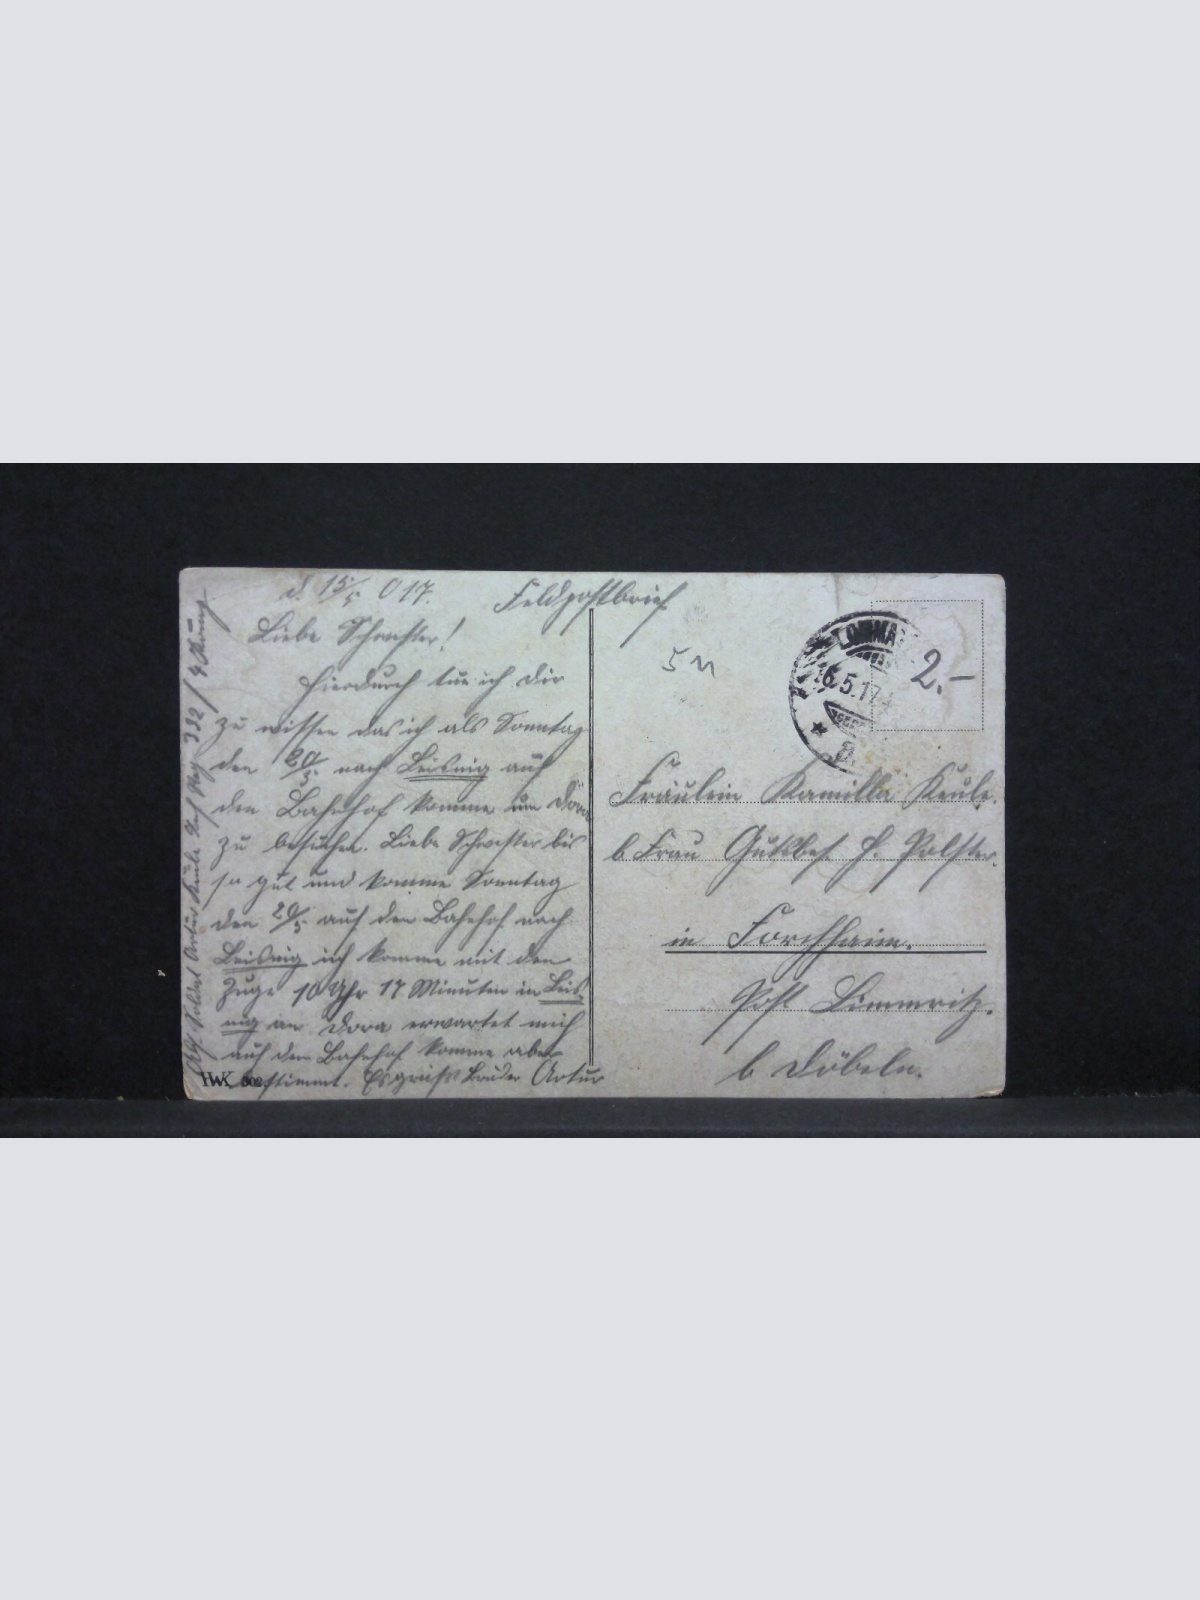 d. 15/5 017.
Feldpostbrief
Liebe Schwester!
Hierdurch tue ich Dir
zu wissen das ich als Sonntag
den 20/5. nach Leisnig auf
den Bahnhof komme um Dora
zu besuchen. Liebe Schwester bis
so gut und komme Sonntag
den 20/5. auf den Bahnhof nach
Leisnig ich komme mit den
Zuge 10 Uhr 17 Minuten in Leis
nig an Dora erwartet mich
auf dem Bahnhof komme aber
bestimmt. Es grüßt Bruder Artur
Abs. Soldat Artur Keule Inf. Reg 332 / 4
HWK 302
LOMMA
16.5.17
a.
2.–
5 M
Fräulein Kamilla Keule.
b Frau Gutsbes. H. Polster.
in Forchheim.
Post Limmritz.
b Döbeln.